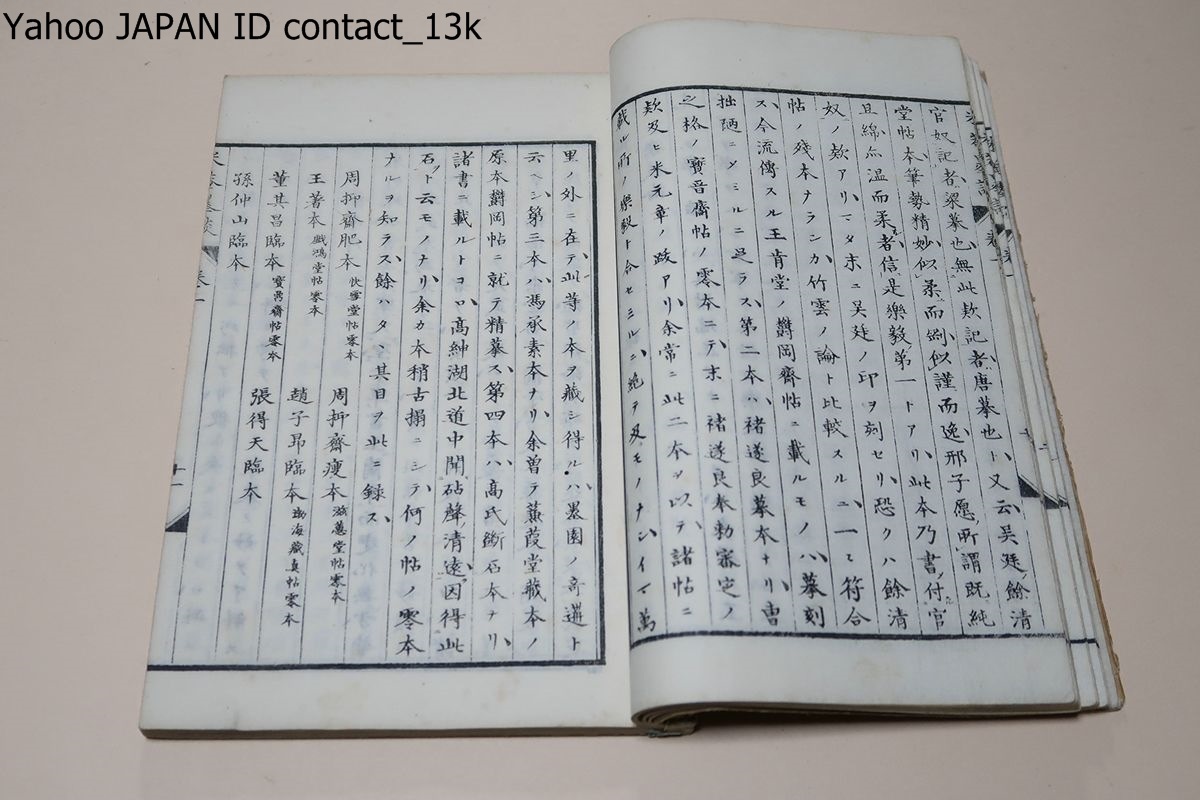 Yahoo JAPAN ID contact_13k
官奴記者梁摹也無此款記者唐摹也ト又云吴廷餘清
堂帖本筆勢精妙似柔而似謹而逸邢子愿所謂既純
且綿亦温而柔者信是樂毅第一トアリ此本乃書付官
奴ノ款アリマタ末ニ吴廷ノ印ヲ刻セリ恐クハ餘清
帖ノ残本ナランカ竹雲ノ論ト比較スルニ一々符合
ス今流傳スル王肯堂ノ欝岡齋帖ニ載ルモノハ摹刻
拙陋ニメミルニ足ラス第二本ハ褚遂良摹本ナリ曹
之格ノ寶晉齋帖ノ零本ニテ末ニ褚遂良奉勅審定ノ
款及ヒ米元章ノ跋アリ余常ニ此二本ヲ以テ諸帖ニ
載ル所ノ樂毅ト合セミルニ絶テ及モノナシイマ萬
里ノ外ニ在テ此等ノ本ヲ藏シ得ルハ墨園ノ奇遇ト
云ヘシ第三本ハ馮承素本ナリ余曽テ蒹葭堂藏本ノ
原本欝岡帖ニ就テ精摹ス第四本ハ高氏断石本ナリ
諸書ニ載ルトコロ高紳湖北道中聞砧聲清遠因得此
石ト云モノナリ余カ本稍古搨ニシテ何ノ帖ノ零本
ナルヲ知ラス餘ハタヽ其目ヲ此ニ録ス
周抑齋肥本 快雪堂帖零本 周抑齋痩本 滋蕙堂帖零本
王著本 戯鴻堂帖零本 趙子昂臨本 渤海藏真帖零本
董其昌臨本 寶鼎齋帖零本 張得天臨本
孫仲山臨本
米菴墨談 巻一
十一